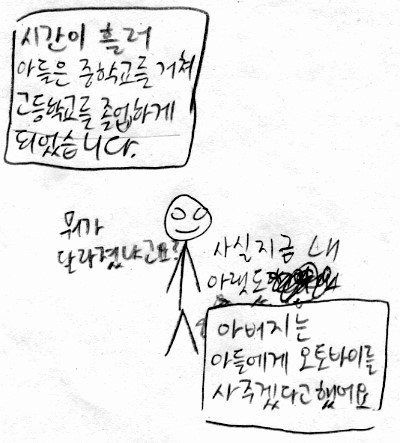 시간이 흘러
아들은 중학교를 거쳐
고등학교를 졸업하게
되었습니다.
뭐가
달라졌냐고요?
사실 지금 내
아랫도
아버지는
아들에게 오토바이를
사주겠다고 했어요